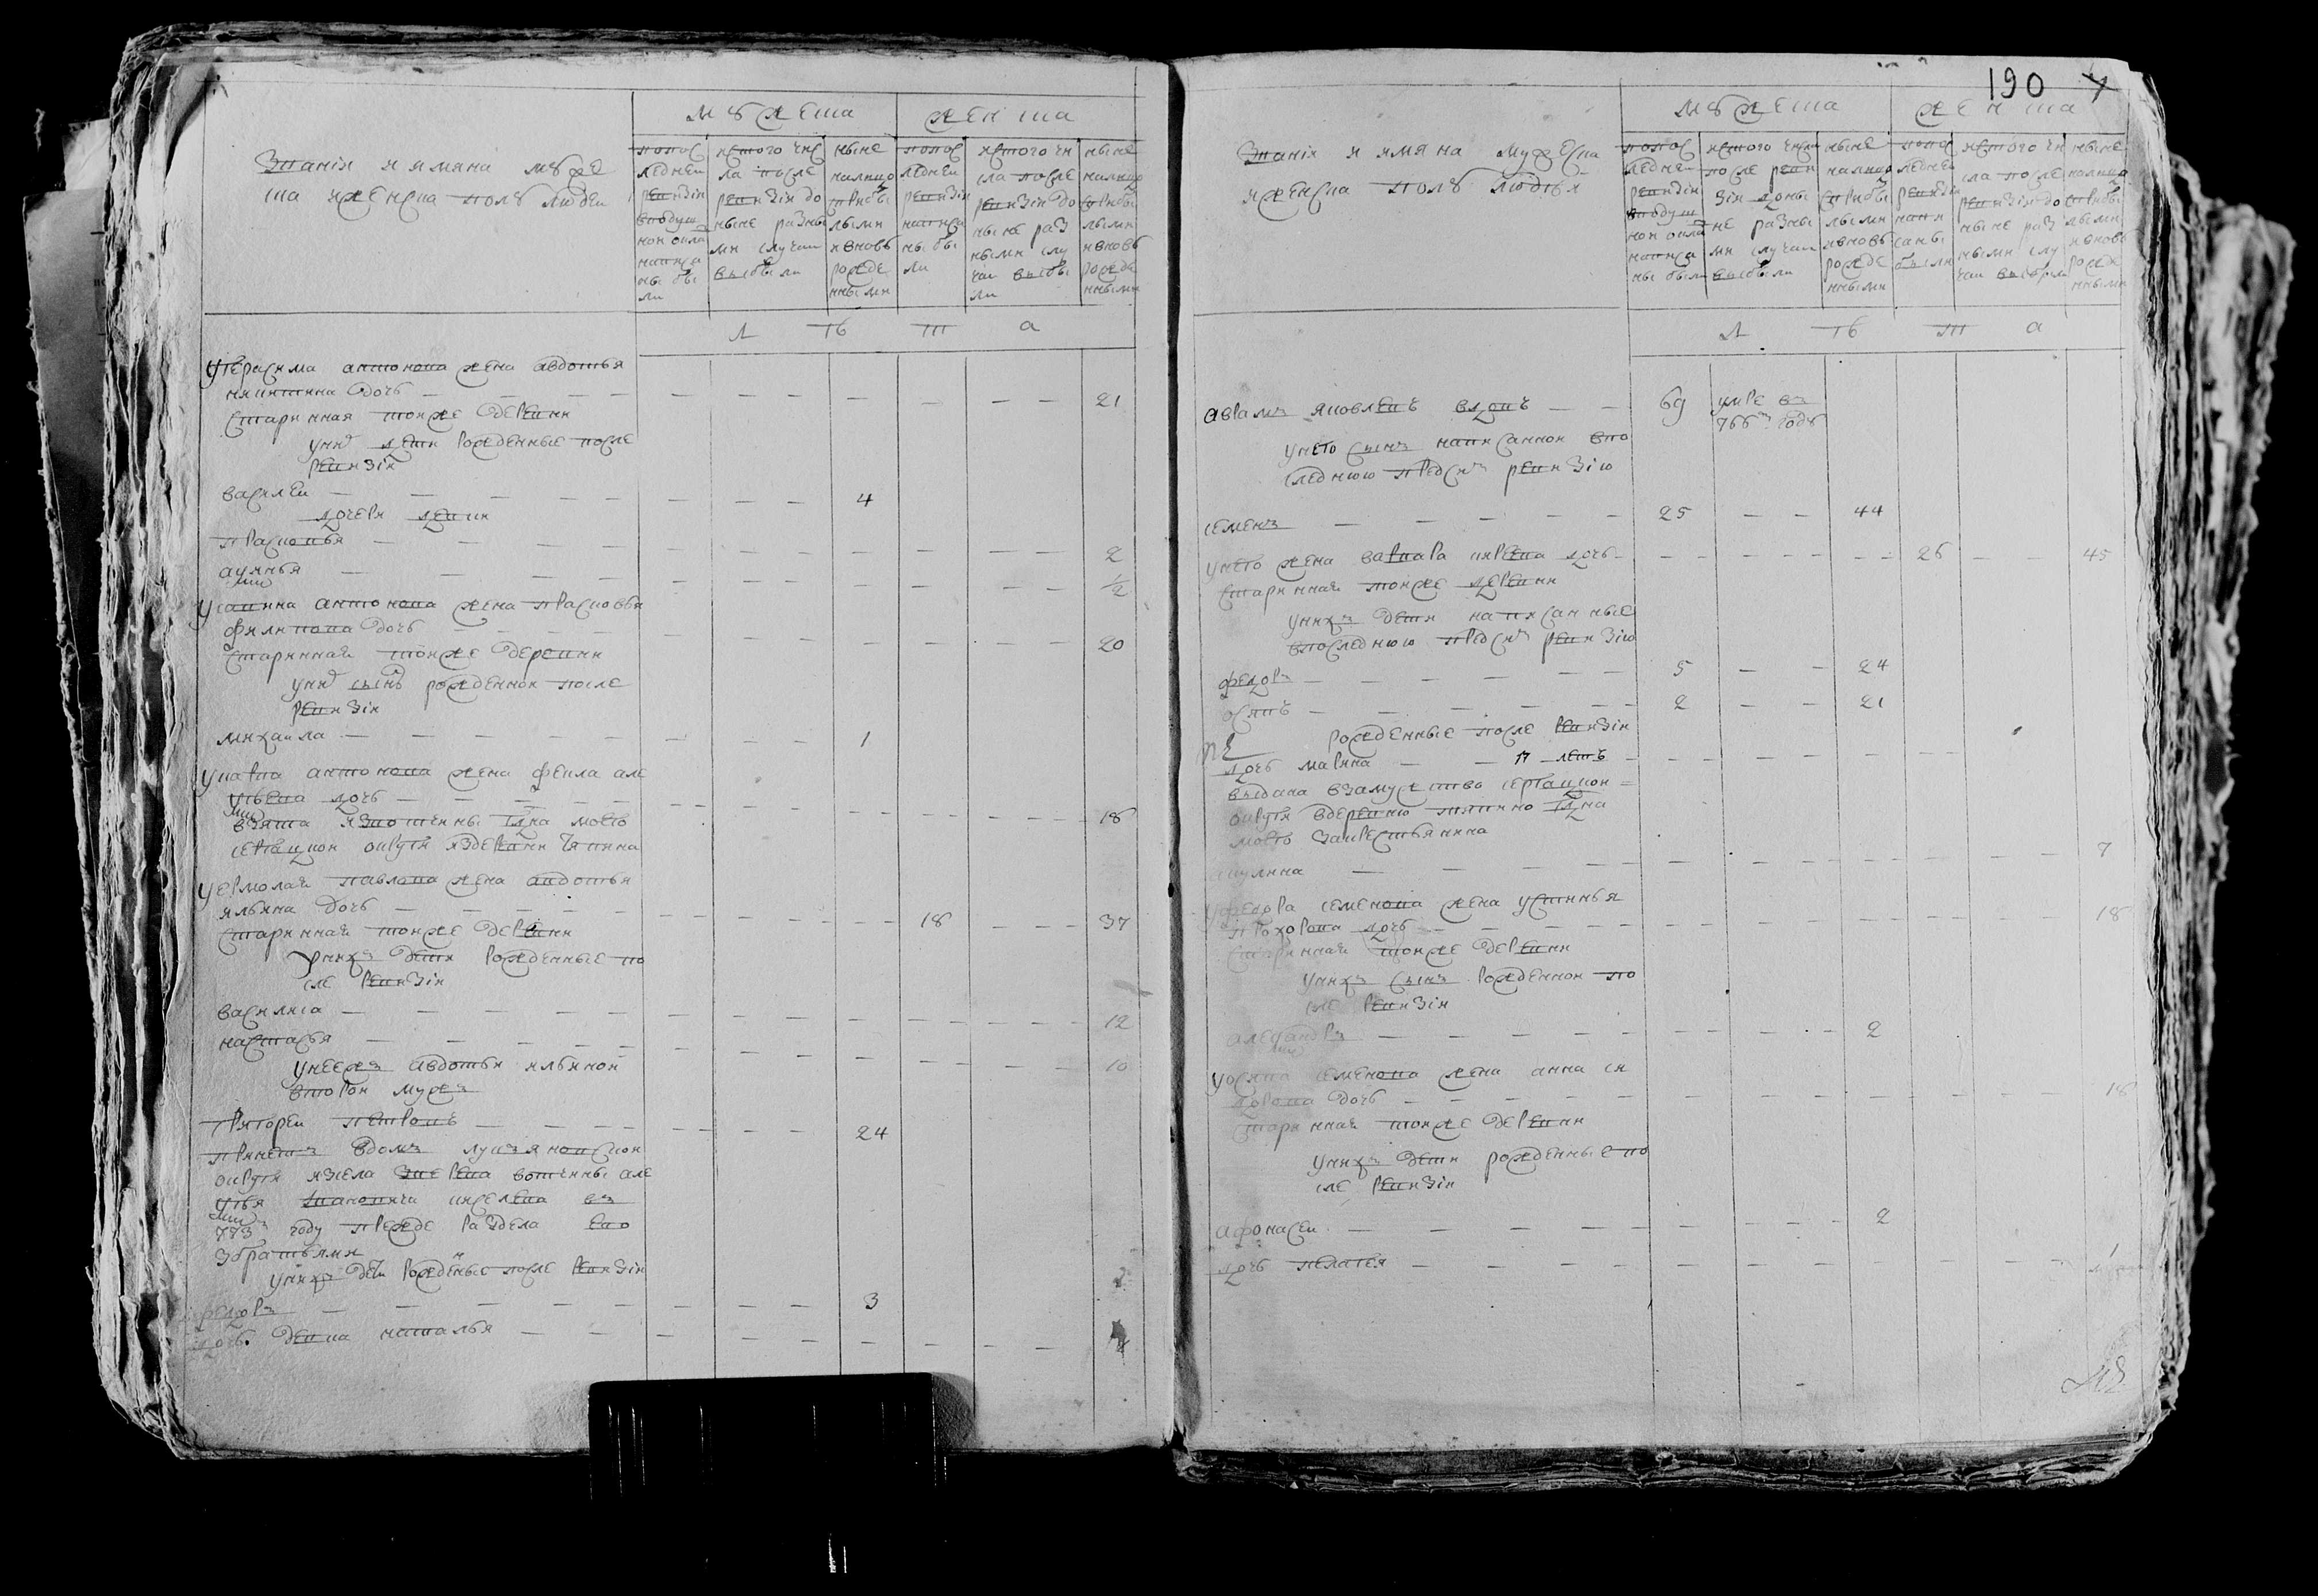 Званія и имяна муже
ска и женска полу людеи
мужеска
женска
попос
леднеи
ревизіи
вподуш
нои окла
написа
ны бы
ли
истого чис
ла после
ревизіи до
ныне разны
ми случаи
выбыли
ныне
налицо
спрібы
лыми
ивновь
рожде
нными
попос
леднеи
ревизіи
написа
ны бы
ли
истого чи
сла после
ревизіи до
ныне раз
ными слу
чаи выбы
ли
ныне
налицо
спрібы
лыми
ивновь
рожде
нными
л ѣ т а
У герасима антонова жена авдотья
никитина дочь — 21
старинная тоиже деревни
унид дети рожденные после
ревизіи
василеи — 4
дочери девки
прасковья — 2
акулья — 1/2
У савина антонова жена прасковья
филипова дочь — 20
стариннаи тоиже деревни
унид сынъ рожденнои после
ревизіи
михаила — 1
У карпа антонова жена фекла але
дочь — 18
взята извотчины гдна моего
округи издеревни
У ермолаи павлова жена авдотья
ильина дочь — 18 — 37
стариннаи тоиже деревни
унихъ дети рожденные по
сле ревизіи
василиса — 12
настасья — 10
унееже авдотьи ильинои
второи мужъ
григореи петровъ — 24
принетъ вдомъ
округи изсела вотчины але
въ
773 году прежде раздела ево
збратьями
унихъ дети рожденые после ревизіи
федоръ — 3
дочь девка наталья —
190
Званія и имяна мужеска
иженска полу людеи
мужеска
женска
попос
леднеи
ревизіи
вподуш
нои окла
написа
ны были
истого числа
после реви
зіи доны
не разны
ми случаи
выбыли
ныне
налицо
спрібы
лыми
ивновь
рожде
нными
попос
леднеи
ревизіи
напи
саны
были
истого чи
сла после
ревизіи до
ныне раз
ными слу
чаи выбыли
ныне
налицо
спрібы
лыми
ивновь
рожде
нными
л ѣ т а
аврамъ яковлевъ вдовъ — 69 умре въ
766м году
унего сынъ написаннои впо
следнюю пред сиъ ревизію
семенъ — 25 — 44
унего жена варвара дочь — 26 — 45
стариннаи тоиже деревни
унихъ дети написанные
впоследнюю пред сиъ ревизію
федоръ — 5 — 24
осипъ — 2 — 21
рожденные после ревизіи
дочь марина — 17 летъ —
выдана взамужство
округи вдеревню гдна
моего закрестьянина
акулина — 7
У федора семенова жена устинья
прохорова дочь — 18
стариннаи тоиже деревни
унихъ сынъ рожденнои по
сле ревизіи
александръ — 2
У осипа семенова жена анна си
дорова дочь — 18
стариннаи тоиже деревни
унихъ дети рожденные по
сле ревизіи
афонасеи — 2
дочь пелагея — 1